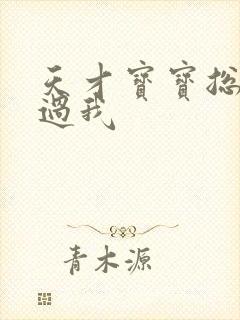 天才寶寶总
過我
青木源